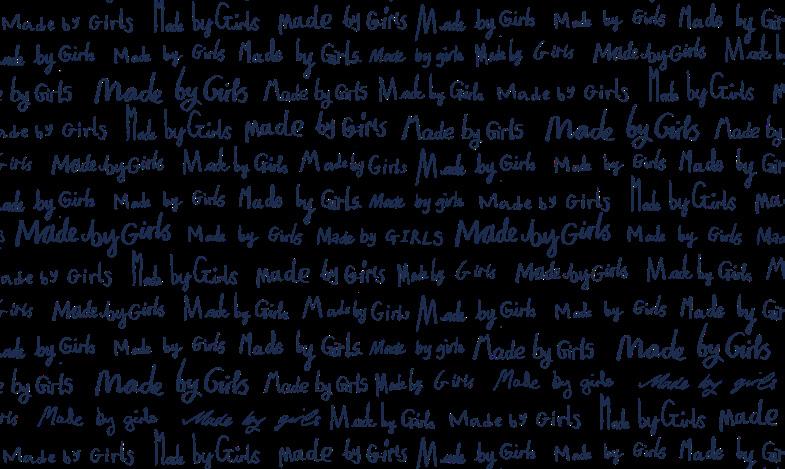 Made by Girls Made by Girls made by Girls Made by Girls Made by Girls Made by Gir
Made by Girls Made by Girls Made by Girls Made by girls Made by Girls Made by Girls Made b
e by Girls Made by Girls Made by Girls Made by Girls Made by Girls Made by Girls M
ade by Girls Made by Girls made by Girls Made by Girls Made by Girls Made by
Girls Made by Girls Made by Girls Made by Girls Made by Girls Made by Girls Made by Gir
ade by Girls Made by Girls Made by Girls Made by girls Made by Girls Made by Girls ma
s Made by Girls Made by Girls Made by GIRLS Made by Girls Made by Girls Mad
ade by Girls Made by Girls made by Girls Made by Girls Made by Girls Made by Girls M
Girls Made by Girls Made by Girls Made by Girls Made by Girls Made by Girls Made by Gir
ade by Girls Made by Girls Made by Girls Made by girls Made by Girls Made by Girls
e by Girls Made by Girls Made by Girls Made by Girls Made by girls Made by girls
irls Made by girls Made by girls Made by Girls Made by Girls Made by Girls made
Made by Girls Made by Girls made by Girls Made by Girls Made by Girls Made by Gir